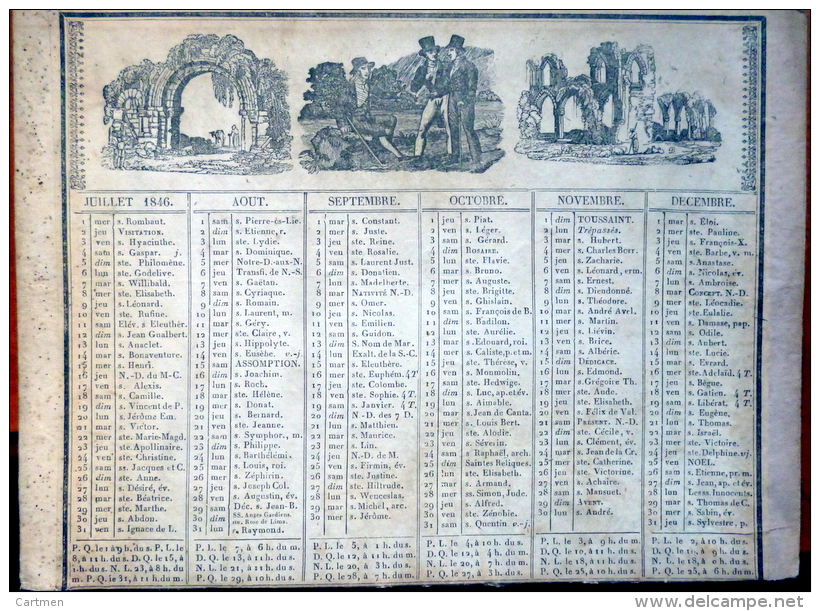 JUILLET 1846.
1 mer s. Rombaut.
2 jeu VISITATION.
3 ven s. Hyacinthe.
4 sam s. Gaspar. j.
5 dim ste. Philomène.
6 lun ste. Godelive.
7 mar s. Willibald.
8 mer ste. Elisabeth.
9 jeu s. Léonard.
10 ven ste. Rufine.
11 sam Elév. s. Eleuthèr.
12 dim s. Jean Gualbert.
13 lun s. Anaclet.
14 mar s. Bonaventure.
15 mer s. Henri.
16 jeu N.-D. du M.-C.
17 ven s. Alexis.
18 sam s. Camille.
19 dim s. Vincent de P.
20 lun s. Jérôme Em.
21 mar s. Victor.
22 mer ste. Marie-Magd.
23 jeu ste. Apollinaire.
24 ven ste. Christine.
25 sam ss. Jacques et C.
26 dim ste. Anne.
27 lun s. Désiré, év.
28 mar ste. Béatrice.
29 mer ste. Marthe.
30 jeu s. Abdon.
31 ven s. Ignace de L.
P. Q. le 1 à 9 h. du s. P. L. le
8, à 11 h. du s. D. Q. le 15, à
1 h. du s. N. L. 23, à 8 h. du
m. P. Q. le 31, à 11 h. du m.
AOUT.
1 sam s. Pierre-ès-Lie.
2 dim s. Etienne, r.
3 lun ste. Lydie.
4 mar s. Dominique.
5 mer Notre-D.-aux-N.
6 jeu Transfi. de N.-S.
7 ven s. Gaëtan.
8 sam s. Cyriaque.
9 dim s. Romain.
10 lun s. Laurent, m.
11 mar s. Géry.
12 mer ste. Claire, v.
13 jeu s. Hippolyte.
14 ven s. Eusèbe. v.-j.
15 sam ASSOMPTION.
16 dim s. Joachim.
17 lun s. Roch.
18 mar ste. Hélène.
19 mer s. Donat.
20 jeu s. Bernard.
21 ven ste. Jeanne.
22 sam s. Symphor., m.
23 dim s. Philippe.
24 lun s. Barthélémi.
25 mar s. Louis, roi.
26 mer s. Zéphirin.
27 jeu s. Joseph Col.
28 ven s. Augustin, év.
29 sam Déc. s. Jean-B.
30 dim SS. Anges Gardiens. ou, Rose de Lima.
31 lun s. Raymond.
P. L. le 7, à 6 h. du m.
D. Q. le 13, à 11 h. du s.
N. L. le 21, à 11 h. du s.
P. Q. le 29, à 10 h. du s.
SEPTEMBRE.
1 mar s. Constant.
2 mer s. Juste.
3 jeu ste. Reine.
4 ven ste Rosalie.
5 sam s. Laurent Just.
6 dim s. Donatien.
7 lun s. Madelberte.
8 mar NATIVITÉ N.-D.
9 mer s. Omer.
10 jeu s. Nicolas.
11 ven s. Emilien.
12 sam s. Guidon.
13 dim S. Nom de Mar.
14 lun Exalt. de la S.-C.
15 mar s. Eleuthère.
16 mer ste. Euphém. 4 T
17 jeu ste. Colombe.
18 ven ste. Sophie. 4 T.
19 sam s. Janvier. 4 T.
20 dim N.-D. des 7 D.
21 lun s. Matthieu.
22 mar s. Maurice.
23 mer s. Lin.
24 jeu N.-D. de M.
25 ven s. Firmin, év.
26 sam ste. Justine.
27 dim ste. Hiltrude.
28 lun s. Wenceslas.
29 mar s. Michel, arc.
30 mer s. Jérôme.
P. L. le 5, à 1 h. du s.
D. Q. le 12, à 11 h. du s.
N. L. le 20, à 3 h. du s.
P. Q. le 28, à 7 h. du m.
OCTOBRE.
1 jeu s. Piat.
2 ven s. Léger.
3 sam s. Gérard.
4 dim ROSAIRE.
5 lun ste. Flavie.
6 mar s. Bruno.
7 mer s. Auguste.
8 jeu ste. Brigitte.
9 ven s. Ghislain.
10 sam s. François de B.
11 dim s. Badilon.
12 lun ste. Aurélie.
13 mar s. Edouard, roi.
14 mer s. Caliste, p. et m.
15 jeu ste. Thérèse, v.
16 ven s. Monmolin.
17 sam ste. Hedwige.
18 dim s. Luc, ap. et év.
19 lun s. Aimable.
20 mar s. Jean de Canta.
21 mer s. Louis Bert.
22 jeu ste. Alodie.
23 ven s. Séverin.
24 sam s. Raphaël, arch.
25 dim Saintes Reliques.
26 lun ste. Elisabeth.
27 mar s. Armand.
28 mer ss. Simon, Jude.
29 jeu s. Alfred.
30 ven ste. Zénobie.
31 sam s. Quentin v.-j.
P. L. le 4, à 10 h. du s.
D. Q. le 12, à 4 h. du s.
N. L. le 20, à 7 h. du m.
P. Q. le 27, à 3 h. du s.
NOVEMBRE.
1 dim TOUSSAINT.
2 lun Trépassés.
3 mar s. Hubert.
4 mer s. Charles Borr.
5 jeu s. Zacharie.
6 ven s. Léonard, erm.
7 sam s. Ernest.
8 dim s. Dieudonné.
9 lun s. Théodore.
10 mar s. André Avel.
11 mer s. Martin.
12 jeu s. Liévin.
13 ven s. Brice.
14 sam s. Albéric.
15 dim DÉDICACE.
16 lun s. Edmond.
17 mar s. Grégoire Th.
18 mer ste. Aude.
19 jeu ste. Elisabeth.
20 ven s. Félix de Val.
21 sam PRÉSENT. N.-D.
22 dim ste. Cécile, v.
23 lun s. Clément, év.
24 mar s. Jean de la Cr.
25 mer ste. Catherine.
26 jeu ste. Victorine.
27 ven s. Achaire.
28 sam s. Mansuet.
29 dim AVENT.
30 lun s. André.
P. L. le 3, à 9 h. du m.
D. Q. le 10, à 11 h. du s.
N. L. le 18, à 11 h. du s.
P. Q. le 25, à 10 h. du s.
DÉCEMBRE.
1 mar s. Éloi.
2 mer ste. Pauline.
3 jeu s. François-X.
4 ven ste. Barbe, v.
5 sam s. Anastase.
6 dim s. Nicolas, év.
7 lun s. Ambroise.
8 mar CONCEPT. N.-D.
9 mer ste. Léocadie.
10 jeu ste. Eulalie.
11 ven s. Damase, pap.
12 sam s. Odile.
13 dim s. Aubert.
14 lun ste. Lucie.
15 mar s. Evrard.
16 mer ste. Adélaïd. 4 T.
17 jeu s. Bégue.
18 ven s. Gatien. 4 T.
19 sam s. Libérat. 4 T.
20 dim s. Eugène.
21 lun s. Thomas.
22 mar s. Israël.
23 mer ste. Victoire.
24 jeu ste. Delphine. v-j
25 ven NOEL.
26 sam s. Etienne, pr. m.
27 dim s. Jean, ap. et év.
28 lun Less. Innocents.
29 mar s. Thomas de C.
30 mer s. Sabin, év.
31 jeu s. Sylvestre, p.
P. L. le 2, à 10 h. du s.
D. Q. le 10, à 9 h. du s.
N. L. le 18, à 0 h. du s.
P. Q. le 25, à 6 h. du m.
Cartmen
http://www.delcampe.net